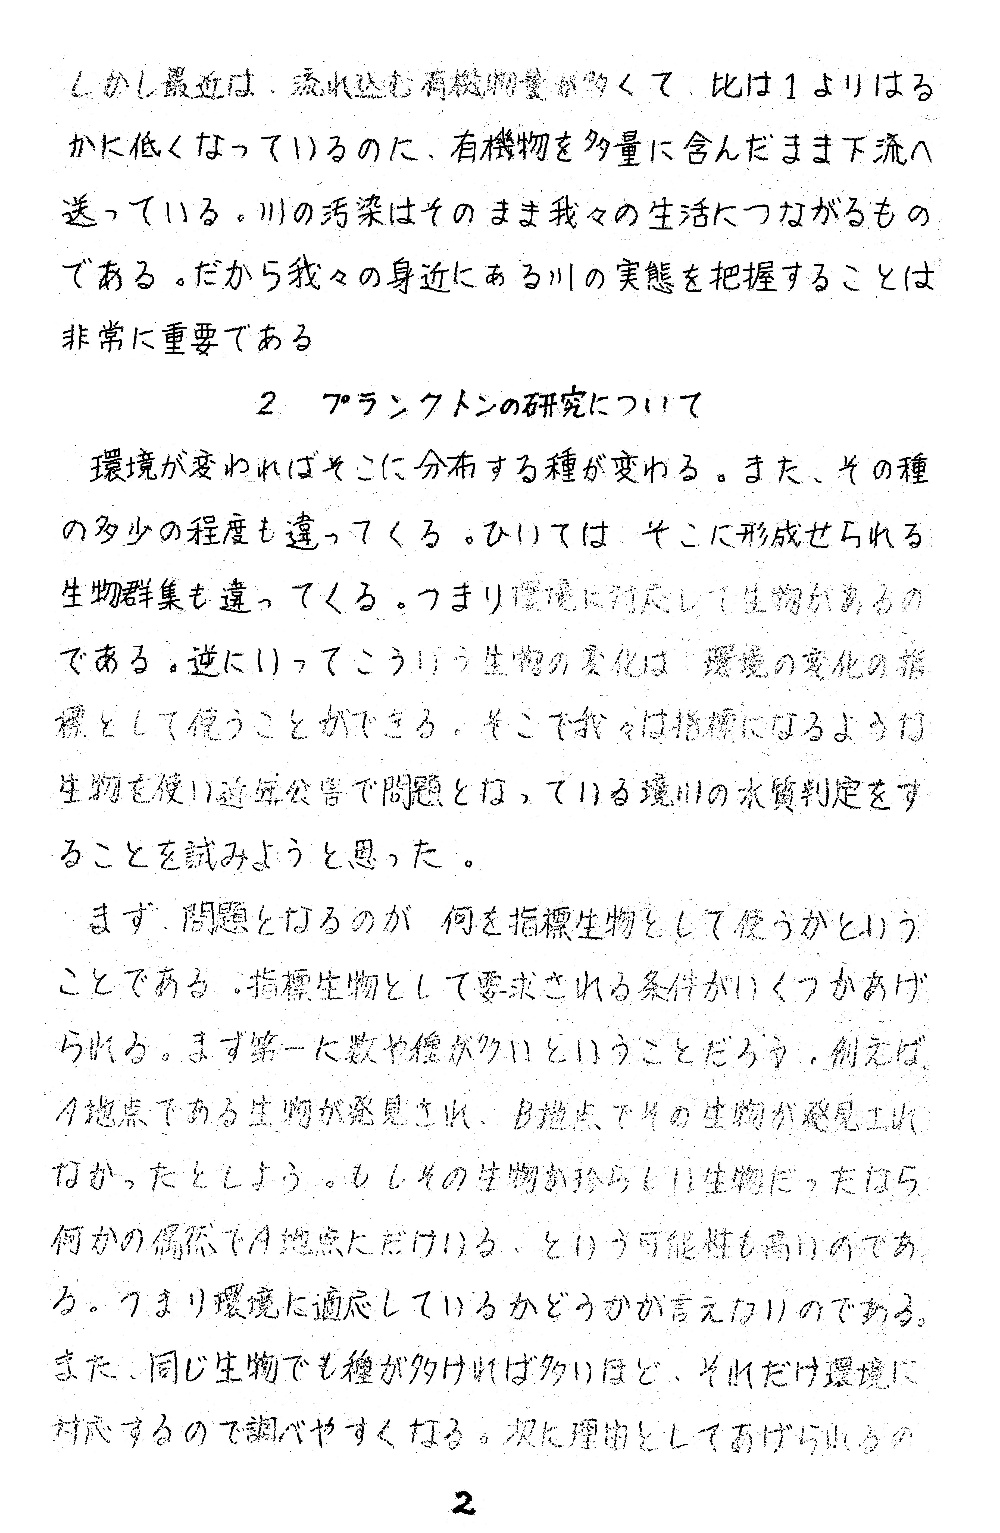 しかし最近は、流れ込む有機物量が多くて、比は1よりはる
かに低くなっているのに、有機物を多量に含んだまま下流へ
送っている。川の汚染はそのまま我々の生活につながるもの
である。だから我々の身近にある川の実態を把握することは
非常に重要である
2 プランクトンの研究について
環境が変わればそこに分布する種が変わる。また、その種
の多少の程度も違ってくる。ひいては そこに形成せられる
生物群集も違ってくる。つまり環境に対応して生物があるの
である。逆にいってこういう生物の変化は 環境の変化の指
標として使うことができる。そこで我々は指標になるような
生物を使い近年公害で問題となっている境川の水質判定をす
ることを試みようと思った。
まず、問題となるのが 何を指標生物として使うかという
ことである。指標生物として要求される条件がいくつかあげ
られる。まず第一に数や種が多いということだろう。例えば、
A地点である生物が発見され、B地点でその生物が発見され
なかったとしよう。もしその生物が珍らしい生物だったなら
何かの偶然でA地点にだけいる、という可能性も高いのであ
る。つまり環境に適応しているかどうかが言えないのである。
また、同じ生物でも種が多ければ多いほど、それだけ環境に
対応するので調べやすくなる。次に理由としてあげられるの
2